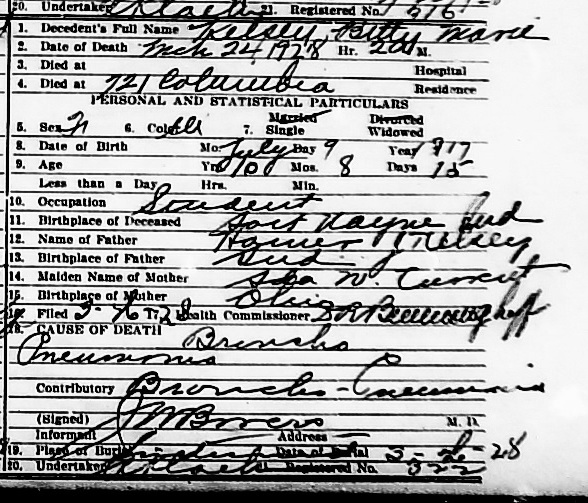 20. Undertaker 21. Registered No. 516
1. Decedent's Full Name Kelsey, Betty Marie
2. Date of Death Mch 24 1928 Hr. 2 a M.
3. Died at Hospital
4. Died at 721 Columbia Residence
PERSONAL AND STATISTICAL PARTICULARS
5. Sex 6. Color 7. Married Single Divorced Widowed
8. Date of Birth Mo. July Day 9 Year 1917
9. Age Yrs. 10 Mos. 8 Days 15
Less than a Day Hrs. Min.
10. Occupation Student
11. Birthplace of Deceased Fort Wayne Ind
12. Name of Father Homer Kelsey
13. Birthplace of Father Ind
14. Maiden Name of Mother W.
15. Birthplace of Mother Ohio
16. Filed 3- 28 17. Health Commissioner
18. CAUSE OF DEATH Broncho
Pneumonia
Contributory Broncho-Pneumonia
(Signed) Bowers M. D.
Informant Address
19. Place of Burial Date of Burial 3- 28
20. Undertaker Registered No. 322